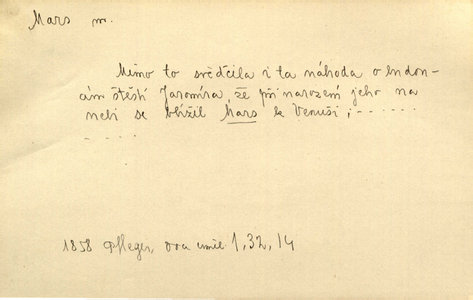 Mars m.
Mimo to svědčila i ta náhoda o budou-
cím štěstí Jaromíra, že při narození jeho na
nebi se blížil Mars k Venuši; - - - - - -
- - - - -
1858 Pfleger, Dva uměl. 1,32,14